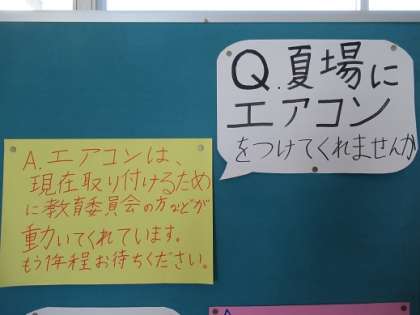 Q.夏場に
エアコン
をつけてくれませんか
A.エアコンは、
現在取り付けるため
に教育委員会の方などが
動いてくれています。
もう1年程お待ちください。